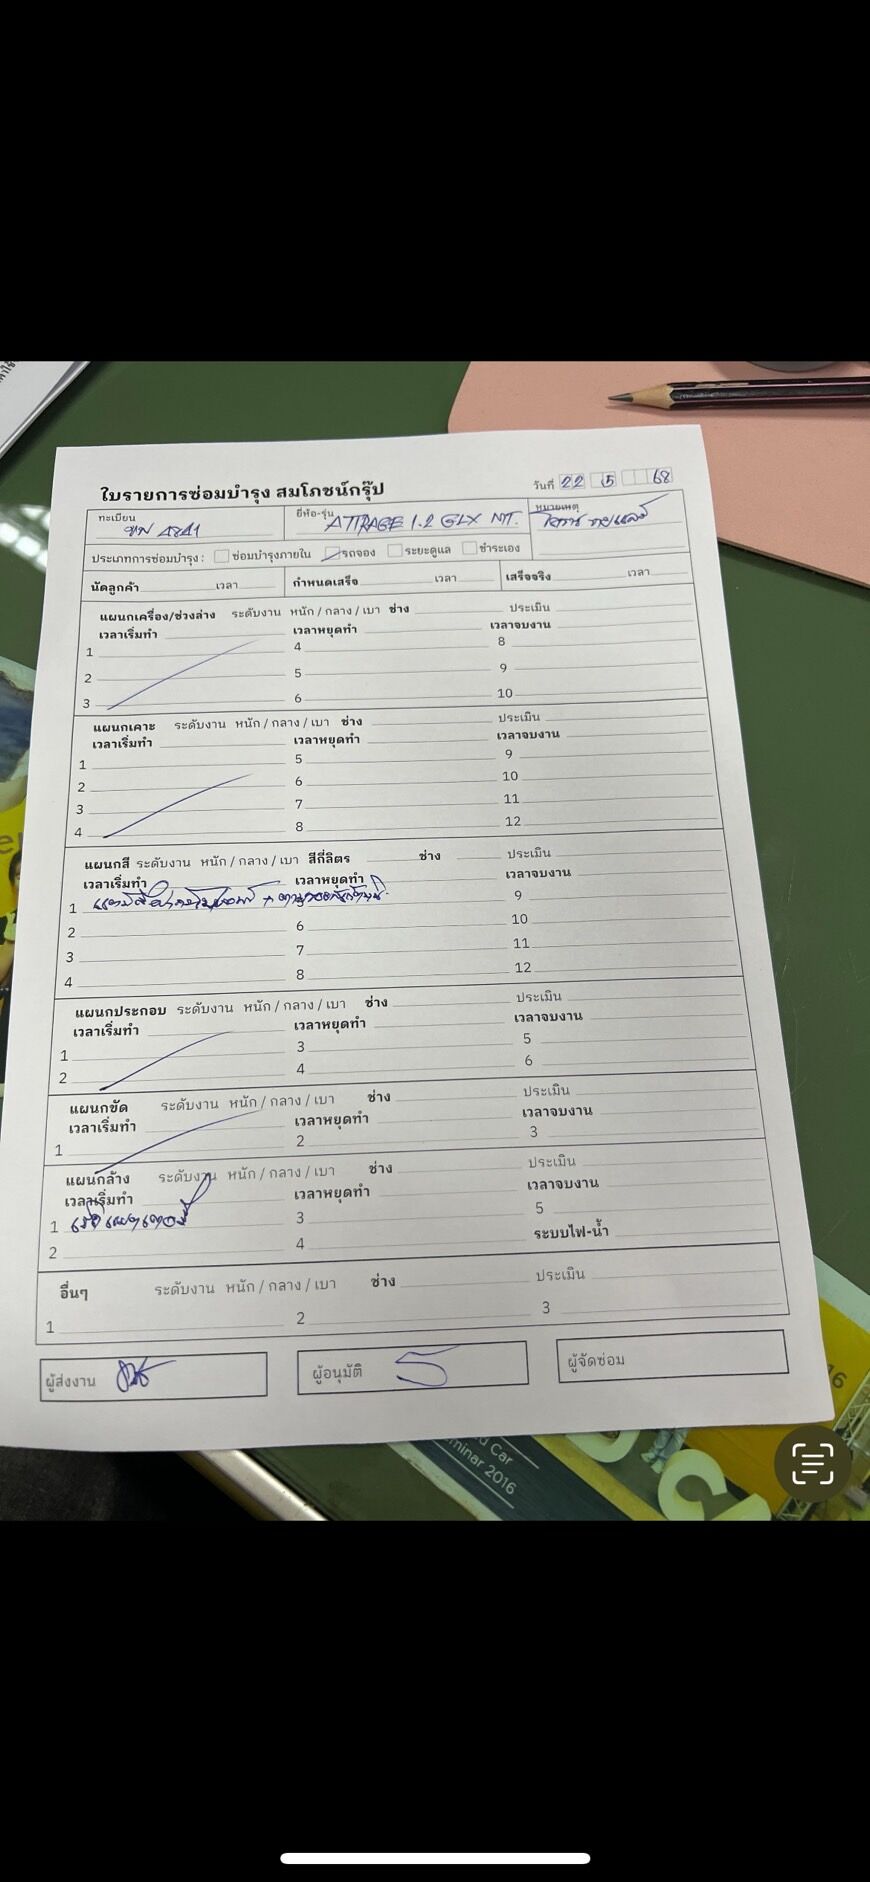 ใบรายการซ่อมบำรุง สมโภชน์กรุ๊ป
วันที่ 22 5 68
ทะเบียน ขน 4841 ยี่ห้อ-รุ่น ATTRAGE 1.2 GLX MT. หมายเหตุ
ประเภทการซ่อมบำรุง : ซ่อมบำรุงภายใน รถจอง ระยะดูแล ชำระเอง
นัดลูกค้า เวลา กำหนดเสร็จ เวลา เสร็จจริง เวลา
แผนกเครื่อง/ช่วงล่าง ระดับงาน หนัก / กลาง / เบา ช่าง ประเมิน
เวลาเริ่มทำ เวลาหยุดทำ เวลาจบงาน
1 4 8
2 5 9
3 6 10
แผนกเคาะ ระดับงาน หนัก / กลาง / เบา ช่าง ประเมิน
เวลาเริ่มทำ เวลาหยุดทำ เวลาจบงาน
1 5 9
2 6 10
3 7 11
4 8 12
แผนกสี ระดับงาน หนัก / กลาง / เบา สีกี่ลิตร ช่าง ประเมิน
เวลาเริ่มทำ เวลาหยุดทำ เวลาจบงาน
1 9
2 6 10
3 7 11
4 8 12
แผนกประกอบ ระดับงาน หนัก / กลาง / เบา ช่าง ประเมิน
เวลาเริ่มทำ เวลาหยุดทำ เวลาจบงาน
1 3 5
2 4 6
แผนกขัด ระดับงาน หนัก / กลาง / เบา ช่าง ประเมิน
เวลาเริ่มทำ เวลาหยุดทำ เวลาจบงาน
1 2 3
แผนกล้าง ระดับงาน หนัก / กลาง / เบา ช่าง ประเมิน
เวลาเริ่มทำ เวลาหยุดทำ เวลาจบงาน
1 3 5
2 4 ระบบไฟ-น้ำ
อื่นๆ ระดับงาน หนัก / กลาง / เบา ช่าง ประเมิน
1 2 3
ผู้ส่งงาน ผู้อนุมัติ ผู้จัดซ่อม
Car
minar 2016